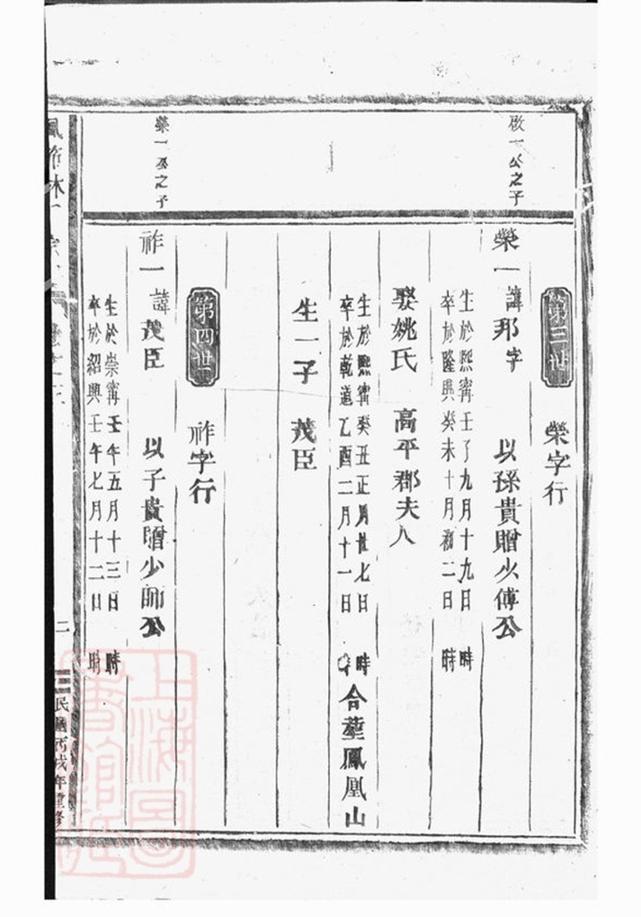 啟一公之子
榮一公之子
第三世
榮字行
榮一
諱邦字
以孫貴贈少傅公
生於熙寧壬子九月十九日 時
卒於隆興癸未十月初二日 時
娶姚氏 高平郡夫人
生於熙寧癸丑正月廿七日 時
卒於乾道乙酉二月十一日 時
合塟鳳凰山
生一子 茂臣
第四世
祚字行
祚一
諱茂臣
以子貴贈少師公
生於崇寧壬午五月十三日 時
卒於紹興壬午七月十二日 時
二
民國丙戌年重修
上海圖書館藏